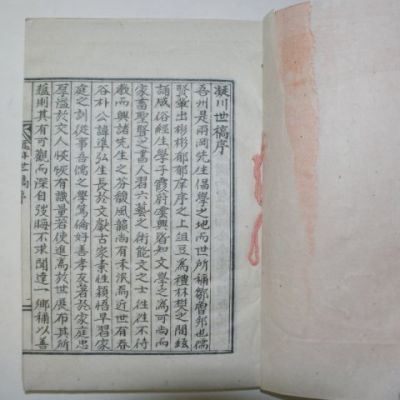 凝川世稿序
吾州是兩岡先生倡學之地而世所稱鄒魯邦也儒
賢輩出彬彬郁郁庠序之上俎豆爲禮林樊之間絃
誦咸俗經生學子霞蔚虞興皆知文學之爲可尚而
家畜聖賢之書人習六藝之術能文之士往往不待
敎而興諸先生之芬馥風韻尚有未泯焉近世有春
谷朴公諱準弘生長於文獻古家素性穎悟早習家
庭之訓從事吾儒之學篤倫好善孝友著於家庭忠
厚溢於文人恢恢有識量若使進爲於世展布其所
蘊則其有可觀而深自弢晦不求聞達一鄉稱以善
凝川世稿 序